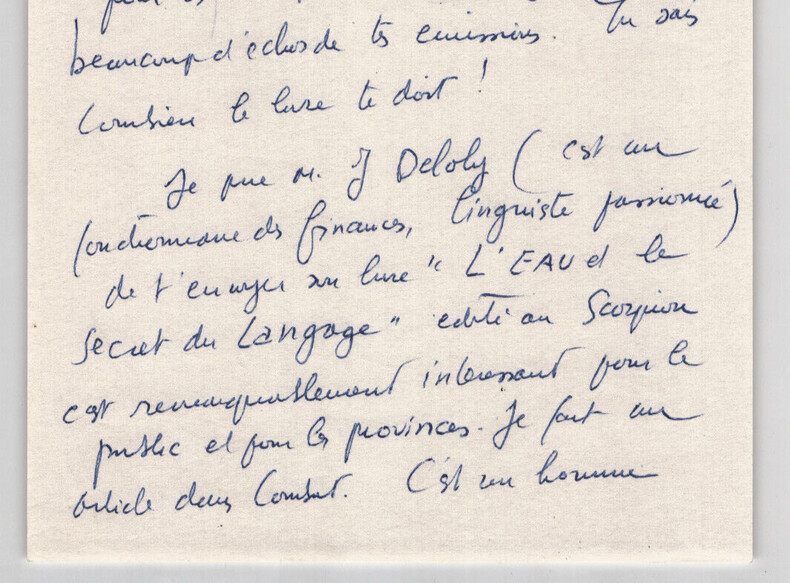 beaucoup d'echos de tes emissions. Tu sais
combien le livre te doit !
Je prie M. J Deloly ( c'est un
fonctionnaire des finances, linguiste passionné)
de t'envoyer son livre " L'EAU et le
secret du Langage" edité au Scorpion
c'est remarquablement interessant pour le
public et pour les provinces. Je fait un
article dans Combat. C'est un homme